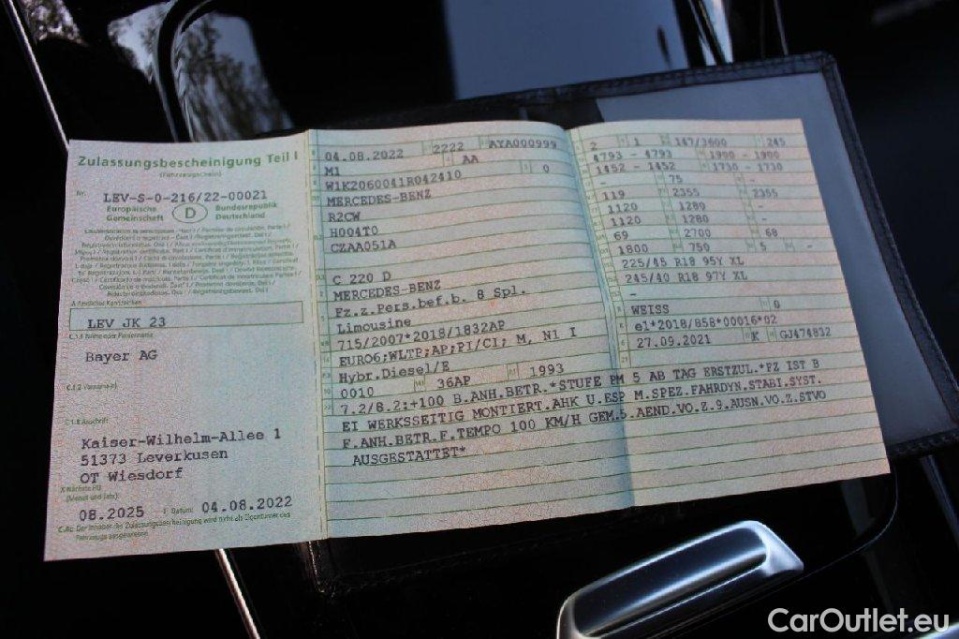 Zulassungsbescheinigung Teil I
(Fahrzeugschein)
Nr. LEV-S-0-216/22-00021
Europäische Gemeinschaft
D
Bundesrepublik Deutschland
LEV JK 23
Bayer AG
Kaiser-Wilhelm-Allee 1
51373 Leverkusen
OT Wiesdorf
08.2025
04.08.2022
04.08.2022 2222 AYA000999
M1 AA
W1K2060041R042410 0
MERCEDES-BENZ
R2CW
H004T0
CZAA051A
C 220 D
MERCEDES-BENZ
Fz.z.Pers.bef.b. 8 Spl.
Limousine
715/2007*2018/1832AP
EURO6;WLTP;AP;PI/CI; M, N1 I
Hybr.Diesel/E
0010 36AP 1993
7.2/8.2:+100 B.ANH.BETR.*STUFE PM 5 AB TAG ERSTZUL.*FZ IST B
EI WERKSSEITIG MONTIERT.AHK U.ESP M.SPEZ.FAHRDYN.STABI.SYST.
F.ANH.BETR.F.TEMPO 100 KM/H GEM.5.AEND.VO.Z.9.AUSN.VO.Z.STVO
AUSGESTATTET*
2 1 147/3600 245
4793 - 4793 1900 - 1900
1452 - 1452 1730 - 1730
- 75 -
119 2355 2355
1120 1280 -
1120 1280 -
69 2700 68
1800 750 5 -
225/45 R18 95Y XL
245/40 R18 97Y XL
-
WEISS 0
e1*2018/858*00016*02
27.09.2021 K GJ474832
CarOutlet.eu